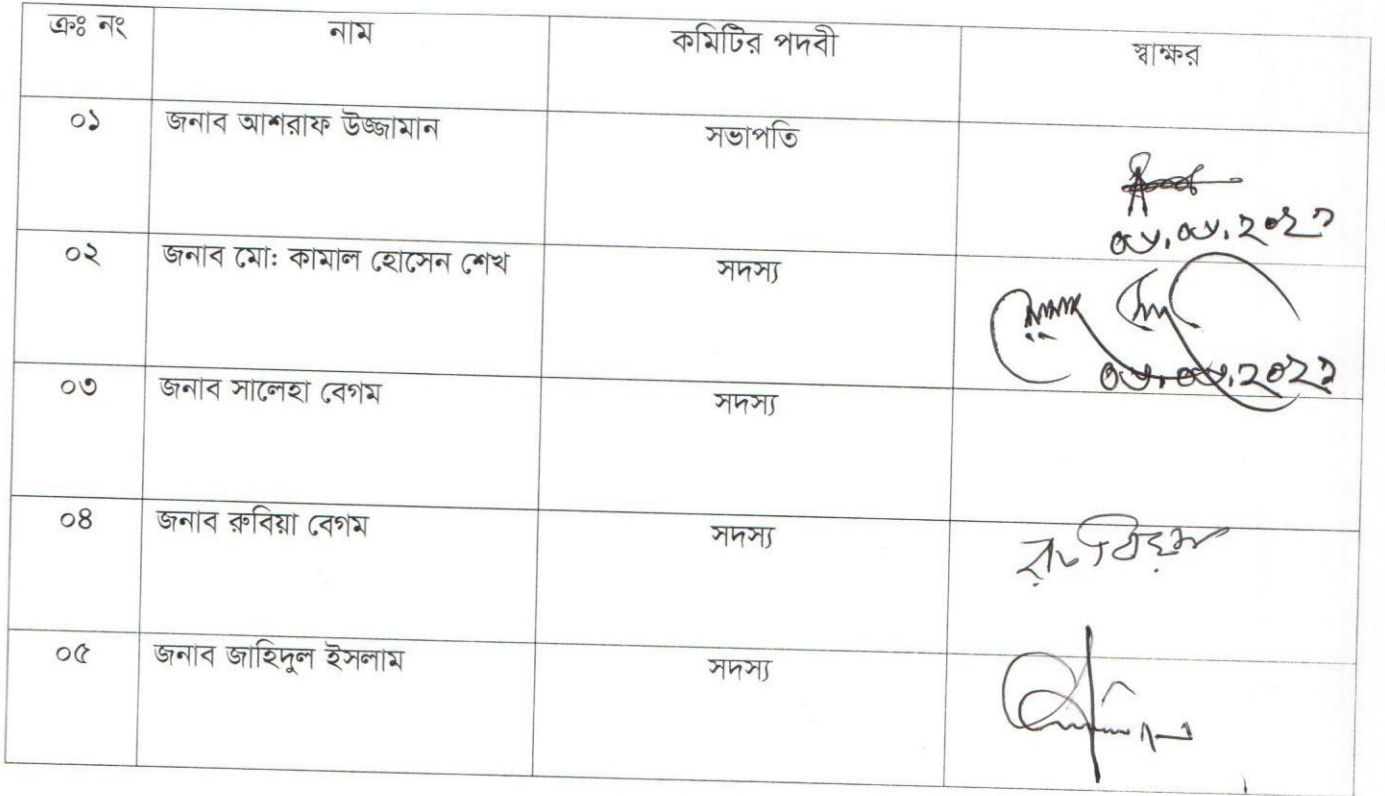 ক্রঃ নং নাম কমিটির পদবী স্বাক্ষর
০১ জনাব আশরাফ উজ্জামান সভাপতি
০৮.০৮.২০২২
০২ জনাব মো: কামাল হোসেন শেখ সদস্য
০৮.০৮.২০২২
০৩ জনাব সালেহা বেগম সদস্য
০৪ জনাব রুবিয়া বেগম সদস্য
০৫ জনাব জাহিদুল ইসলাম সদস্য